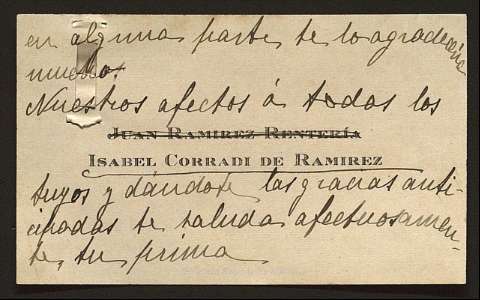 en alguna parte te lo agradecería
mucho.
Nuestros afectos á todos los
JUAN RAMIREZ RENTERÍA
ISABEL CORRADI DE RAMIREZ
tuyos y dándote las gracias anti-
cipadas te saluda afectuosamen-
te, tu prima